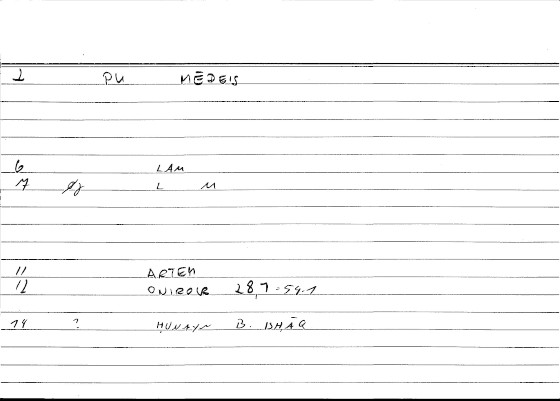 1 PU MĒDEIS
6 LAM
7 L M
11 ARTEM
12 ONIROCR 28,7-59.1
14 ? ḤUNAYN B. ISḤĀQ